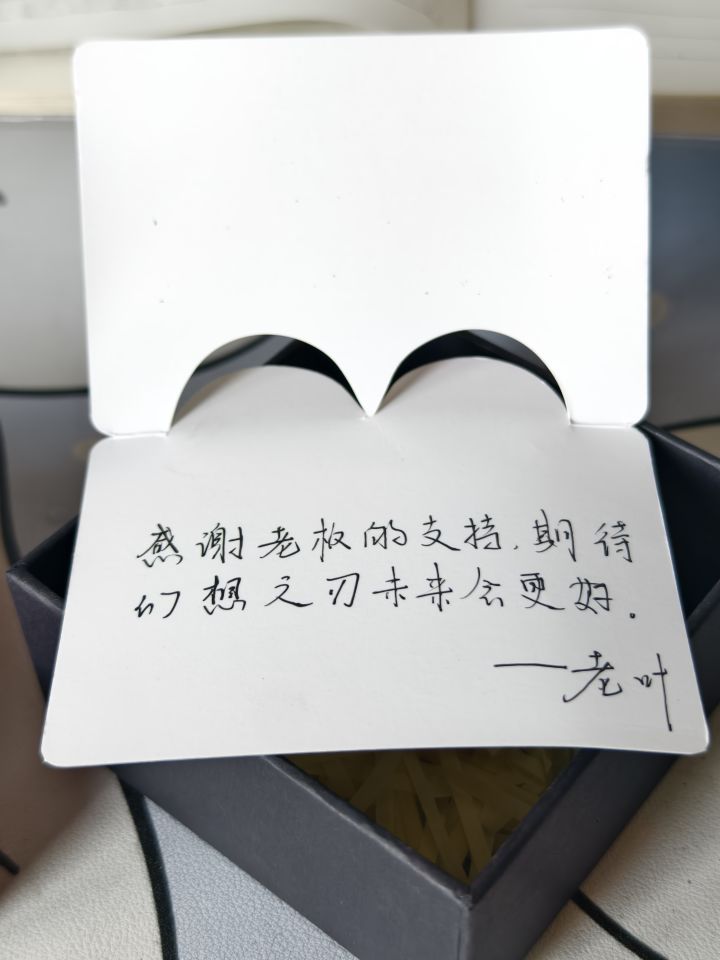 感谢老板的支持,期待
幻想之刃未来会更好。
——老叶